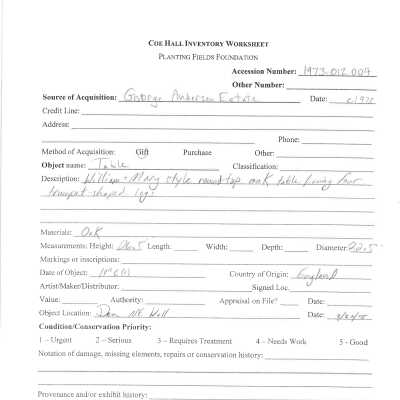 COE HALL INVENTORY WORKSHEET
PLANTING FIELDS FOUNDATION
Accession Number: 1973.012.004
Other Number:
Source of Acquisition: George Andersen Estate Date: c1972
Credit Line:
Address:
Phone:
Method of Acquisition: Gift Purchase Other:
Object name: Table Classification:
Description: William + Mary style round top oak table having four
trumpet shaped legs
Materials: Oak
Measurements: Height: Length: Width: Depth: Diameter:
Markings or inscriptions:
Date of Object: Country of Origin: England
Artist/Maker/Distributor: Signed Loc.
Value: Authority: Appraisal on File? Date:
Object Location: Den Hall Date:
Condition/Conservation Priority:
1 – Urgent 2 – Serious 3 – Requires Treatment 4 – Needs Work 5 - Good
Notation of damage, missing elements, repairs or conservation history:
Provenance and/or exhibit history: